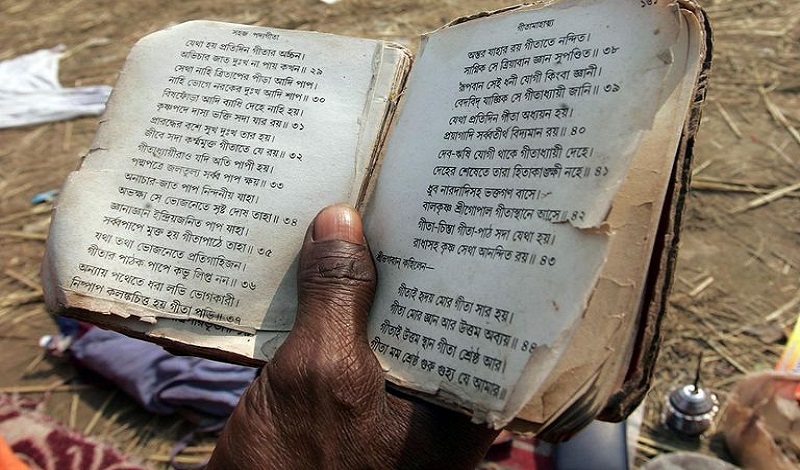 সহজ পদ্যগীতা
যেথা হয় প্রতিদিন গীতার অর্চ্চন।
অভিচার জাত দুঃখ না পায় কখন॥ ২৯
সেথা নাহি ত্রিতাপের পীড়া আদি পাপ।
নাহি ভোগে নরকের ব্যাধি আদি শাপ॥ ৩০
বিষফোঁড়া আদি ব্যাধি দেহে নাহি হয়।
কৃষ্ণপদে দাস্য ভক্তি সদা যার রয়॥ ৩১
প্রারব্ধের বশে সুখ দুঃখ তার হয়।
জীবে সদা কর্ম্মমুক্ত গীতাতে যে রয়॥ ৩২
গীতাধ্যায়ীরাও যদি অতি পাপী হয়।
পদ্মপত্রে জলতুল্য সর্ব্ব পাপ ক্ষয়॥ ৩৩
অনাচার-জাত পাপ নিন্দনীয় যাহা।
অভক্ষ্য সে ভোজনেতে সৃষ্ট দোষ তাহা॥ ৩৪
জ্ঞানাজ্ঞানী ইন্দ্রিয়জনিত পাপ যাহা।
সর্ব্বপাপে মুক্ত হয় গীতাপাঠে তাহা॥ ৩৫
যথা তথা ভোজনেতে প্রতিগ্রাহিজন।
গীতার পাঠক পাপে কভু লিপ্ত নন॥ ৩৬
অন্যায় পথেতে ধরা লভি ভোগকারী।
নিষ্পাপ কলঙ্কচিত্ত হয় গীতা পড়ি॥ ৩৭
গীতামাহাত্ম্য
১৬১
অন্তর যাহার রয় গীতাতে নন্দিত।
সাগ্নিক সে ক্রিয়াবান জ্ঞান সুপণ্ডিত॥ ৩৮
রূপবান সেই ধনী যোগী কিংবা জ্ঞানী।
বেদবিদ্ যাজ্ঞিক সে গীতাধ্যায়ী জানি॥ ৩৯
যেথা প্রতিদিন গীতা অধ্যয়ন হয়।
প্রয়াগাদি সর্ব্বতীর্থ বিদ্যমান রয়॥ ৪০
দেব-ঋষি যোগী থাকে গীতাধ্যায়ী দেহে।
দেহের শেষেতে তারা হিতাকাঙ্ক্ষী নহে॥ ৪১
ধ্রুব নারদাদিসহ ভক্তগণ বাসে।
বালকৃষ্ণ শ্রীগোপাল গীতাস্থানে আসে॥ ৪২
গীতা-চিন্তা গীতা-পাঠ সদা যেথা হয়।
রাধাসহ কৃষ্ণ সেথা আনন্দিত রয়॥ ৪৩
শ্রীভগবান্ কহিলেন—
গীতাই হৃদয় মোর গীতা সার হয়।
গীতা মোর জ্ঞান আর উত্তম অব্যয়॥ ৪৪
গীতাই উত্তম স্থান গীতা শ্রেষ্ঠ আর।
গীতা মম শ্রেষ্ঠ গুরু গুহ্য যে আমার॥